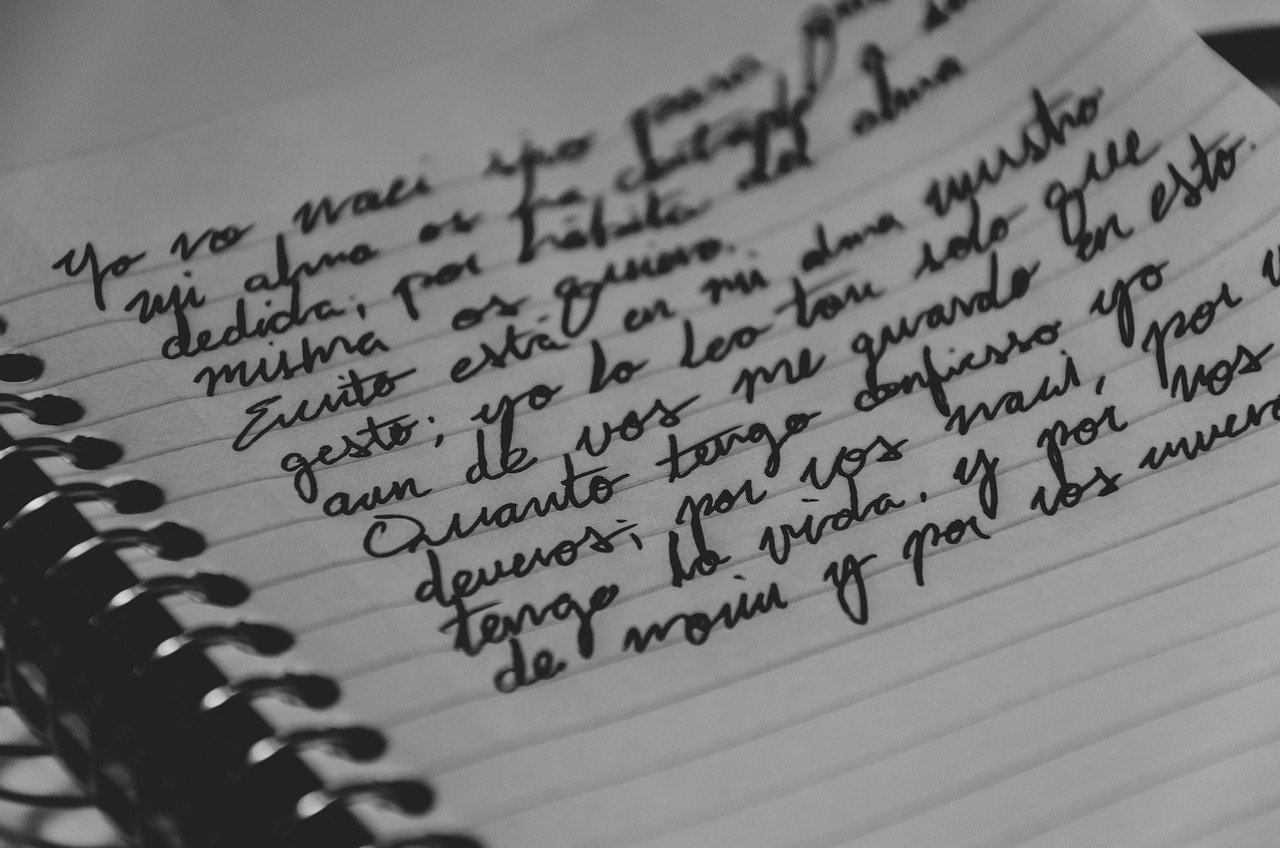 Yo no naci sino para
mi alma os ha cortado
dedida; por hábito del alma
misma os quiero.
Escrito está en mi alma vuestro
gesto; yo lo leo tan solo que
aun de vos me guardo en esto.
Quanto tengo confiesso yo
deveros; por vos naci, por
tengo la vida, y por vos
de morir y por vos muero